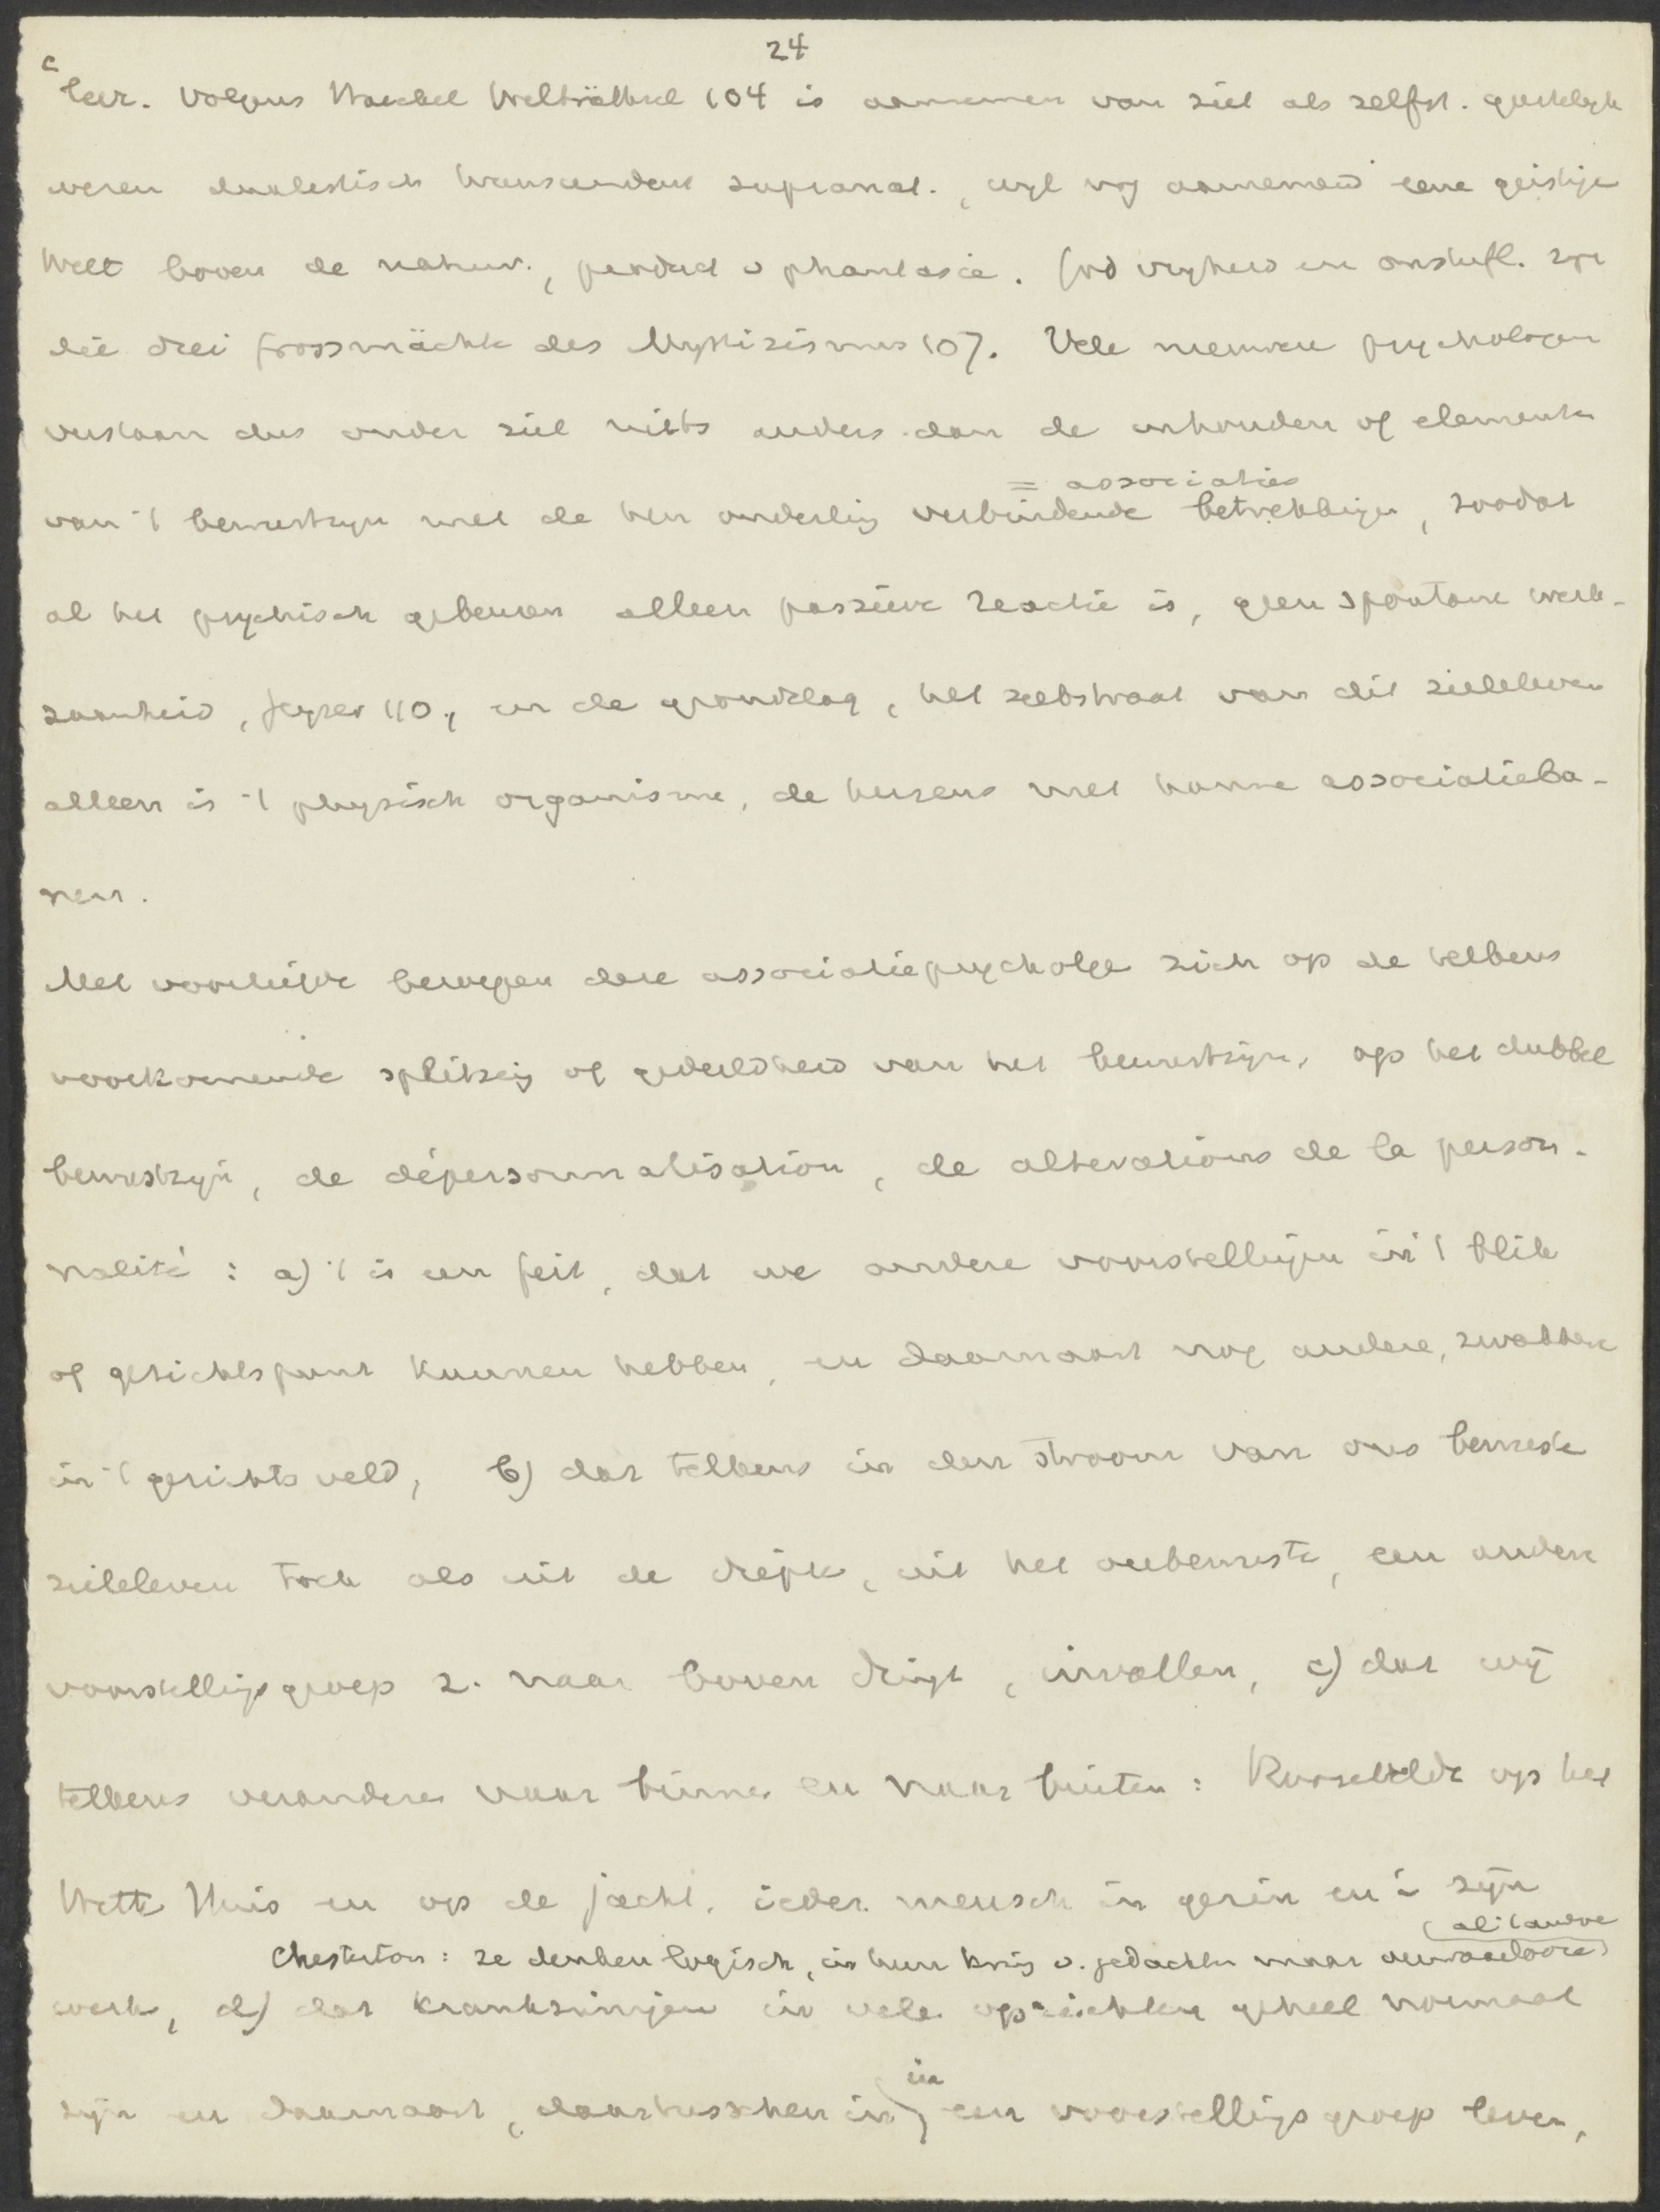 24
c
leer. Volgens Haeckel Welträthsel 104 is aannemen van ziel als zelfst. geestelyk
wezen dualistisch transcendent supranat., wyl wy aannemen eene geistige
Welt boven de natuur, product v phantasie. God vryheid en onsterfl. zyn
die drei Grossmächte des Mystizismus 107. Vele nieuwere psychologen
verstaan dus onder ziel niets anders dan de inhouden of elementen
= associaties
van 't bewustzyn met de hen onderling verbindende betrekkingen, zoodat
al het psychisch gebeuren alleen passieve reactie is, geen spontane werk-
zaamheid, Geyser 110, en de grondslag, het substraat van dit zieleleven
alleen is 't physisch organisme, de hersens met hunne associatieba-
nen.
Met voorliefde beroepen deze associatiepsychologen zich op de telkens
voorkomende splitsing of gedeeldheid van het bewustzyn, op het dubbel
bewustzyn, de dépersonnalisation, de altérations de la person-
nalité: a) 't is een feit, dat we andere voorstellingen in 't blik
of gezichtspunt kunnen hebben, en daarnaast nog andere, zwakkere
in 't gezichtsveld, b) dat telkens in den stroom van ons bewuste
zieleleven toch als uit de diepte, uit het onbewuste, een andere
voorstellingsgroep z. naar boven dringt, invallen, c) dat wij
telkens veranderen naar binnen en naar buiten: Roosevelde op het
Witte Huis en op de jacht, ieder mensch in gezin en in zijn
Chesterton: ze denken logisch, in hun kring v. gedachten maar
werk, d) dat krankzinnigen in vele opzichten geheel normaal
in
zijn en daarnaast, daartusschen in een voorstellingsgroep leven,